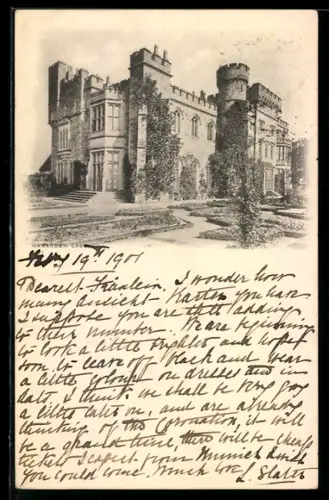 HAWARDEN CAS
Feby 19th 1901
Dearest Fräulein, I wonder how
many ansicht-Karten you have
I suppose you are still adding
to their number. We are beginning
to look a little brighter and hope
soon to leave off black and wear
a little colour on dresses and in
hats, I think we shall be very gay
a little later on, and are already
thinking of the Coronation, it will
be a grand time, there will be cheap
tickets I expect from Munich I wish
you could come. Much love L. Slater